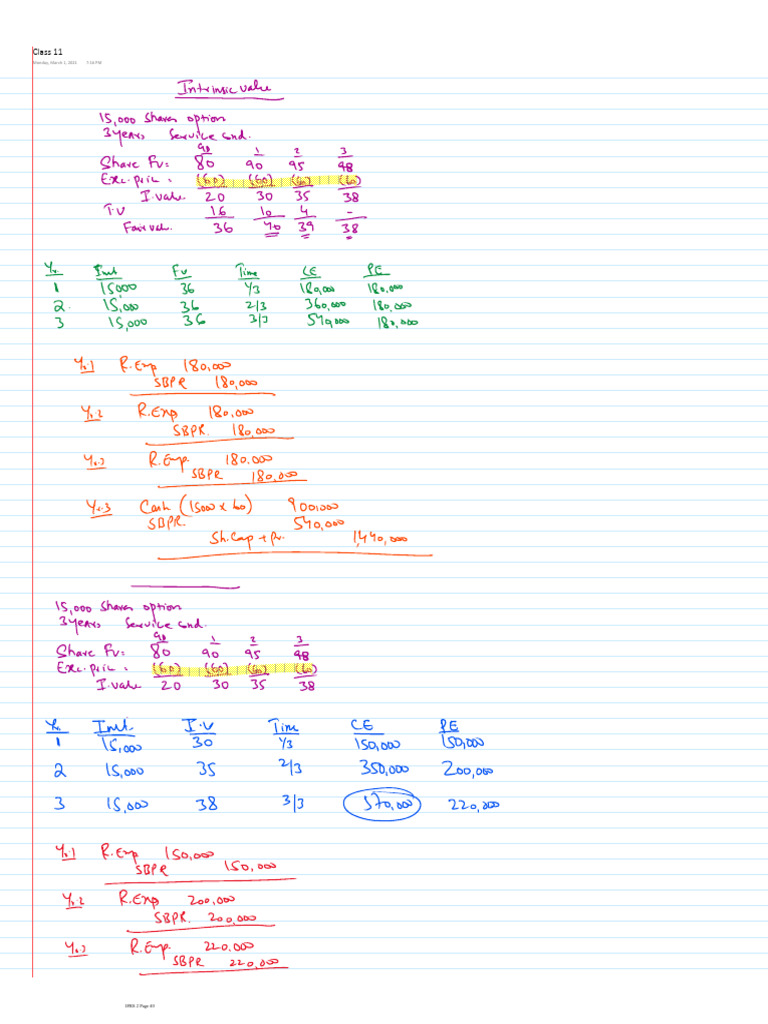 Class 11
Monday, March 1, 2021 7:16 PM
Intrinsic value
15,000 shares option
3 years service cond.
GD 1 2 3
Share Fv: 80 90 95 98
Exc. pric: (60) (60) (60) (60)
I. value 20 30 35 38
T.V 16 10 4 -
Fair val. 36 40 39 38
Yr. Inst Fv Time CE PE
1 15000 36 1/3 180,000 180,000
2. 15,000 36 2/3 360,000 180,000
3 15,000 36 3/3 540,000 180,000
Yr.1 R.Exp 180,000
SBPR 180,000
Yr.2 R.Exp 180,000
SBPR. 180,000
Yr.3 R.Exp. 180.000
SBPR 180,000
Yr.3 Cash (15000 x 60) 900,000
SBPR. 540,000
Sh.Cap + Pr. 1,440,000
15,000 shares option
3 years service cond.
GD 1 2 3
Share Fv: 80 90 95 98
Exc. pric: (60) (60) (60) (60)
I. value 20 30 35 38
Yr. Inst. I.V Time CE PE
1 15,000 30 1/3 150,000 150,000
2 15,000 35 2/3 350,000 200,000
3 15,000 38 3/3 570,000 220,000
Yr.1 R.Exp 150,000
SBPR 150,000
Yr.2 R.Exp 200,000
SBPR. 200,000
Yr.3 R.Exp. 220.000
SBPR 220,000